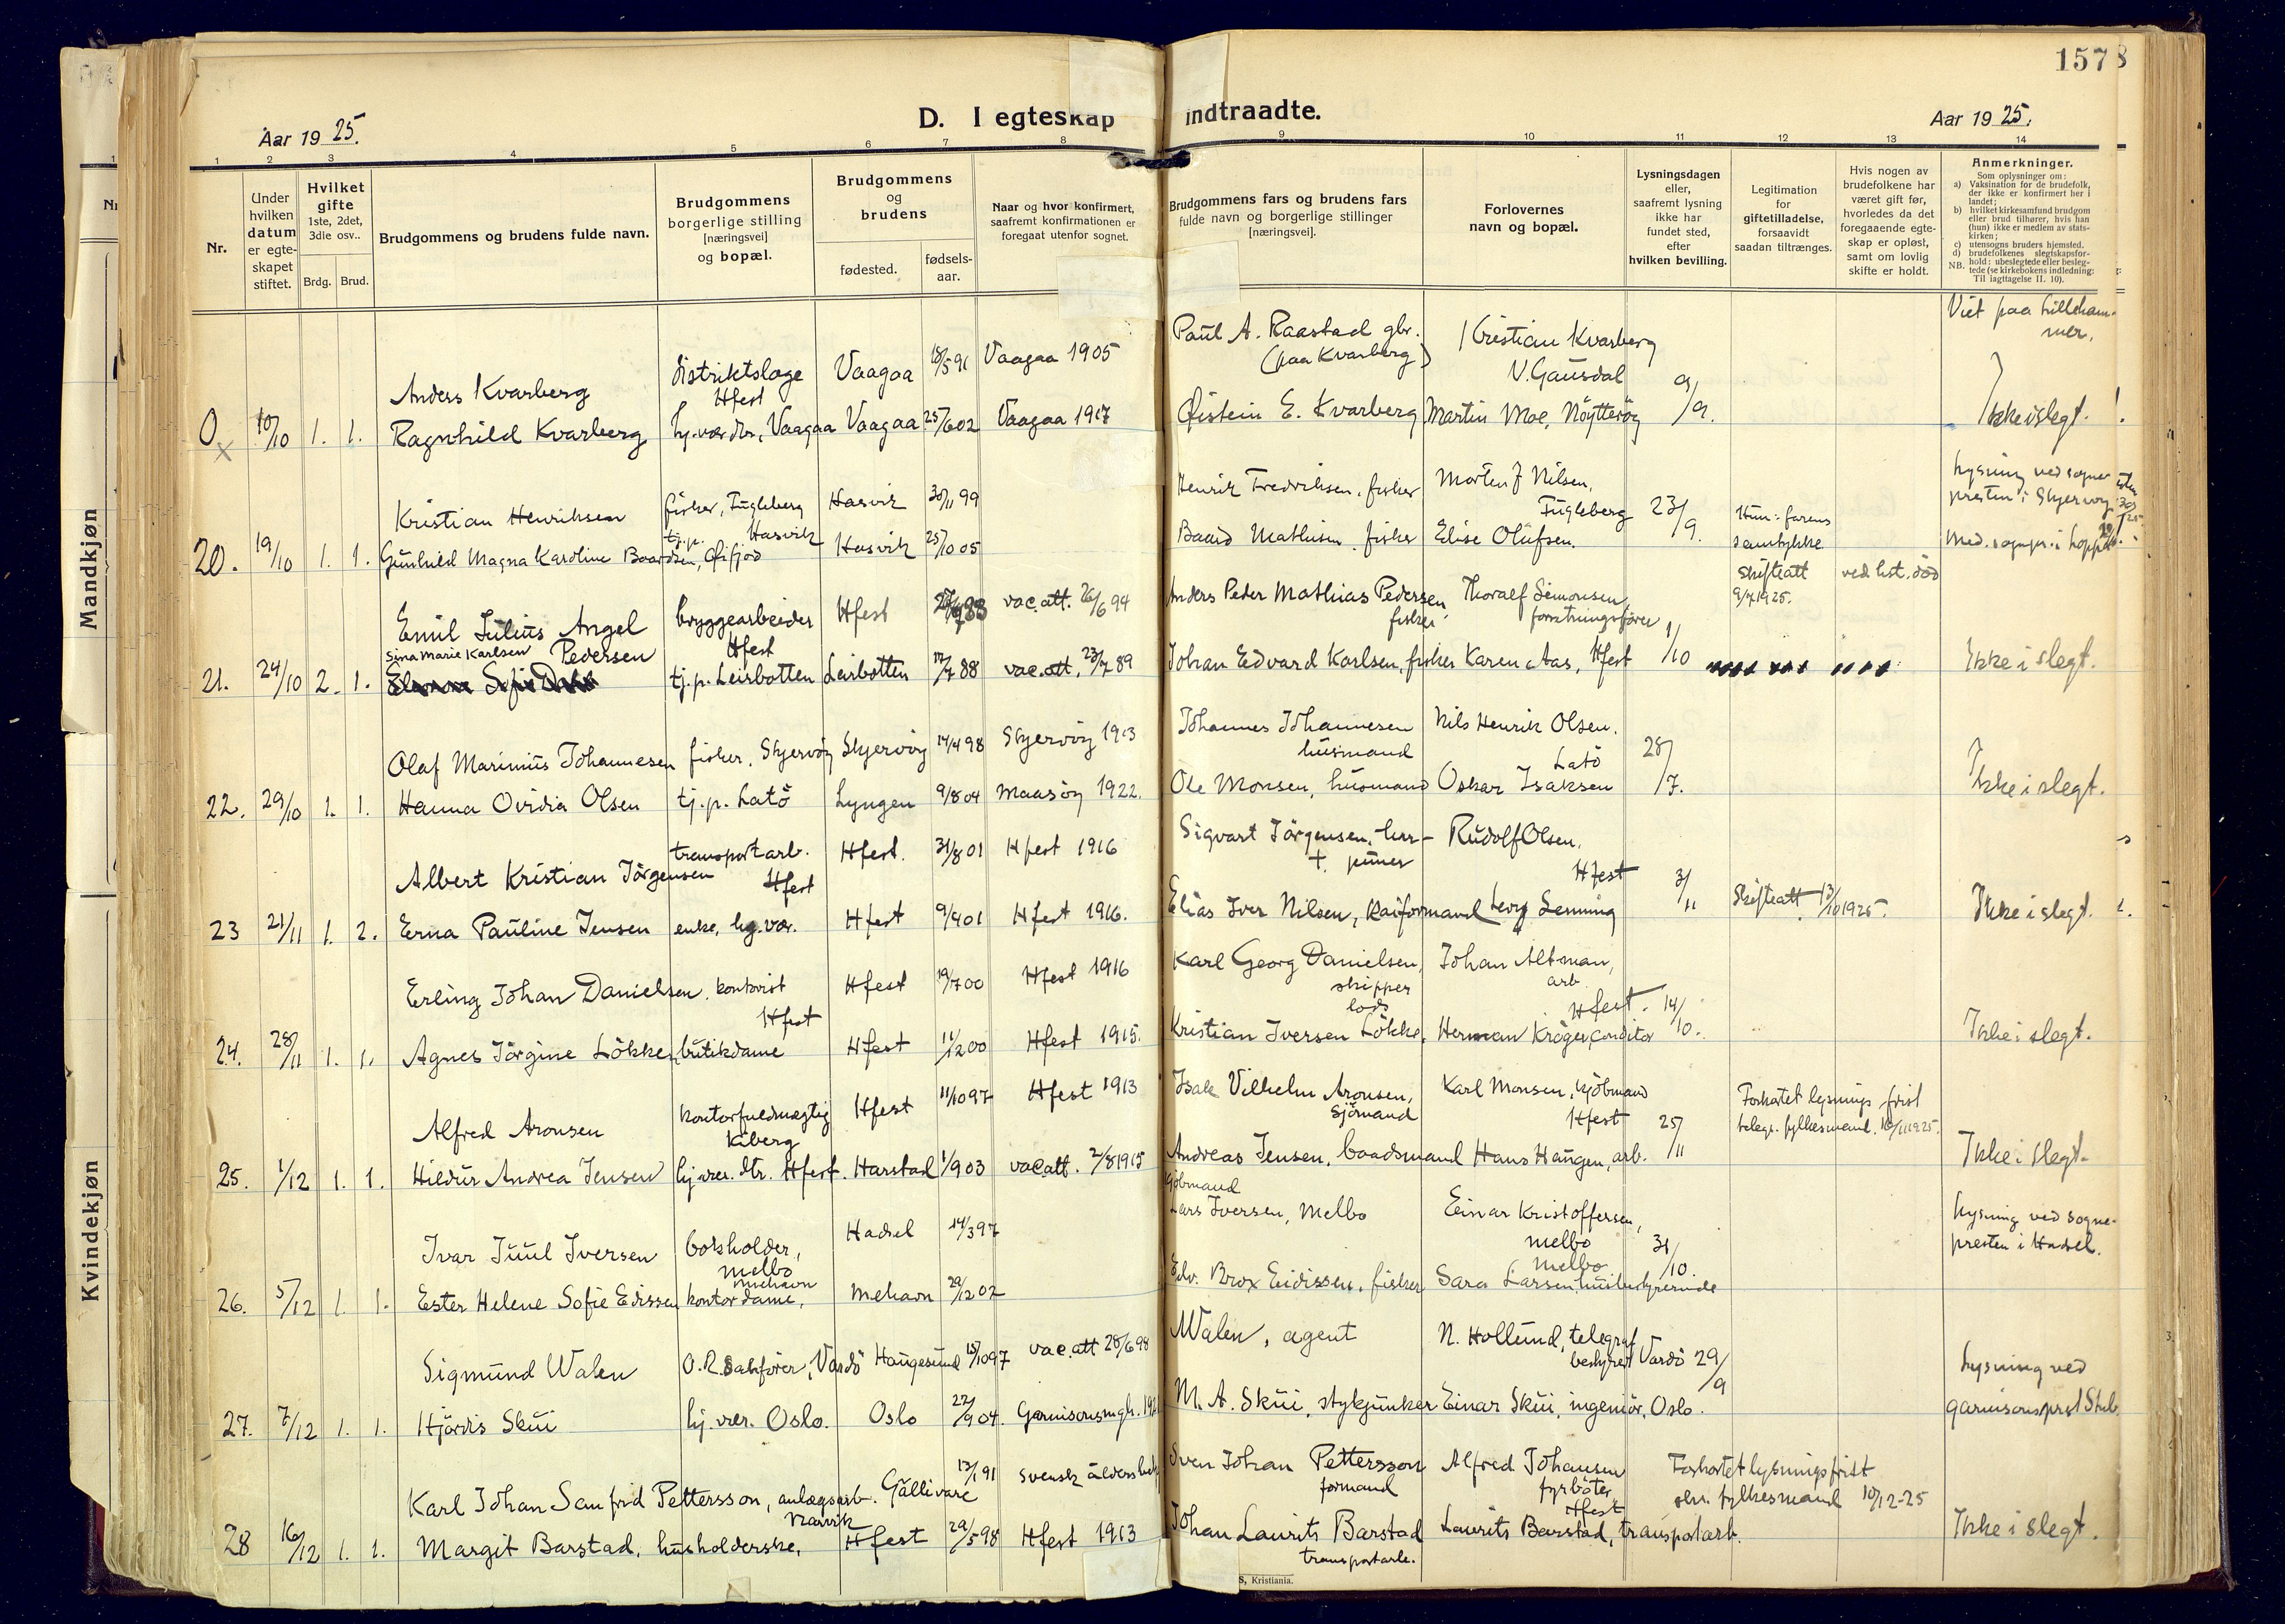 1578
D. I egteskap indtraadte.
Aar 19 25.
Aar 19 25.
Mandkjøn
Kvindekjøn
1 2 3 4 5 6 7 8 9 10 11 12 13 14
Nr.
Under hvilken datum er egteskapet stiftet.
Hvilket gifte 1ste, 2det, 3die osv..
Brdg. Brud.
Brudgommens og brudens fulde navn.
Brudgommens borgerlige stilling [næringsvei] og bopæl.
Brudgommens og brudens
fødested.
fødsels-aar.
Naar og hvor konfirmert, saafremt konfirmationen er foregaat utenfor sognet.
Brudgommens fars og brudens fars fulde navn og borgerlige stillinger [næringsvei].
Forlovernes navn og bopæl.
Lysningsdagen eller, saafremt lysning ikke har fundet sted, efter hvilken bevilling.
Legitimation for giftetilladelse, forsaavidt saadan tiltrænges.
Hvis nogen av brudefolkene har været gift før, hvorledes da det foregaaende egteskap er opløst, samt om lovlig skifte er holdt.
Anmerkninger.
Som oplysninger om:
a) Vaksination for de brudefolk, der ikke er konfirmert her i landet;
b) hvilket kirkesamfund brudgom eller brud tilhører, hvis han (hun) ikke er medlem av statskirken;
c) utensogns bruders hjemsted.
d) brudefolkenes slegtskapsforhold: ubeslegtede eller beslegtede (se kirkebokens indledning: Til iagttagelse II. 10).
NB.
Anders Kvarberg distriktslæge Hfest Vaagaa 18/5 91 Vaagaa 1905 Paul A. Raastad gbr. (paa Kvarberg) Kristian Kvarberg V. Gausdal Viet paa Lillehammer.
0 x 10/10 1. 1. Ragnhild Kvarberg hj. vær. dtr., Vaagaa Vaagaa 25/6 02 Vaagaa 1917 Øistein E. Kvarberg Martin Moe, 9/9. Ikke i slegt.
Kristian Henriksen fisker, Fugleberg Hasvik Hasvik 30/11 99 Henrik Fredriksen, fisker Morten J Nilsen, Fugleberg 23/9. Lysning ved sognepresten i Skjervøy
20. 19/10 1. 1. Gunhild Magna Karoline Baardsen, tj.p. Øifjord Hasvik 25/10 05 Baard Mathisen, fisker Elise Olafsen. Hun: farens samtykke Med. sognepr. i Loppa
Emil Julius Angel Pedersen bryggearbeider Hfest Hfest vac. att. 26/6 94 Anders Peder Mathias Pedersen fisker Thoralf Simonsen, forretningsfører 1/10 Skifteatt 9/7 1925. ved hst. död
21. 24/10 2. 1. Sina Marie Karlsen tj.p. Leirbotten Leirbotten 12/7 88 vac. att. 23/7 89 Johan Edvard Karlsen, fisker Karen Aas, Hfest Ikke i slegt.
Olaf Marinius Johannesen fisker, Skjervöy Skjervöy 14/4 98 Skjervöy 1913 Johannes Johannesen husmand Nils Henrik Olsen. Latö 28/7.
22. 29/10 1. 1. Hanna Ovidia Olsen tj.p. Latö Lyngen 9/8 04 Maasöy 1922. Ole Monsen, husmand Oskar Isaksen Ikke i slegt.
Albert Kristian Jörgensen transportarb. Hfest Hfest. 31/8 01 Hfest 1916 Sigvart Jörgensen, † Rudolf Olsen, Hfest 3/11
23 21/11 1. 2. Erna Pauline Jensen enke, hj. vær. Hfest 9/4 01 Hfest 1916. Elias Iver Nilsen, Kaiformand Levy Lenning Skifteatt 13/10 1925. Ikke i slegt.
Erling Johan Danielsen, kontorist Hfest Hfest 19/7 00 Hfest 1916 Karl Georg Danielsen, skipper Johan Altman, arb. Hfest. 14/10.
24. 28/11 1. 1. Agnes Jörgine Lökke, butikdame Hfest 11/12 00 Hfest 1915. Kristian Iversen Lökke, lods Herman Kröger, conditor Ikke i slegt.
Alfred Aronsen kontorfuldmægtig Kiberg Hfest 11/10 97 Hfest 1913 Isak Vilhelm Aronsen, Sjömand Karl Monsen, kjöbmand Hfest 25/11 Forkortet lysningsfrist telegr. fylkesmand. 1925.
25. 1/12 1. 1. Hildur Andrea Jensen hj. vær. dtr. Hfest. Harstad 1/9 03 vac att. 2/8 1915 Andreas Jensen, baadsmand Hans Haugen, arb. Ikke i slegt.
Ivar Juul Iversen bokholder, Melbo Hadsel 14/3 97 kjöbmand Lars Iversen, Melbo Einar Kristoffersen, Melbo 31/10. Lysning ved sognepresten i Hadsel.
26. 5/12 1. 1. Ester Helene Sofie Edissen kontordame, Mehavn Mehavn 29/12 02 Edv. Brox Eidissen, fisker Sara Larsen, husbestyrerinde Melbo
Sigmund Walen O.R.sakförer, Vardö Haugesund 15/10 97 vac. att 28/6 98 Walen, agent N. Hollund, telegrafbestyrer Vardö 29/9 Lysning ved
27. 7/12 1. 1. Hjördis Skui hj. vær. Oslo. Oslo 22/9 04. M. A. Skui, stykjunker Einar Skui, ingeniör, Oslo. garnisonsprst
Karl Johan Sanfrid Pettersson, anlægsarb. Narvik Gällivare 13/1 91 svensk Sven Johan Pettersson formand Alfred Johansen fyrböter Hfest Forkortet lysningsfrist skr. fylkesmand 10/12-25
28 16/12 1. 1. Margit Barstad, husholderske, Hfest 29/5 98 Hfest 1913 Johan Laurits Barstad transportarb. Laurits Barstad, transportarb. Ikke i slegt.
S, Kristiania.